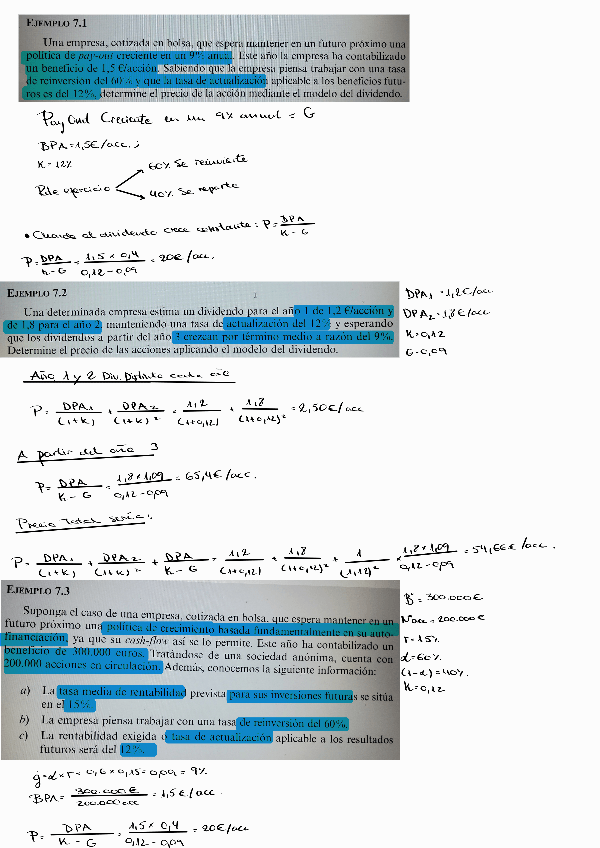 EJEMPLO 7.1
Una empresa, cotizada en bolsa, que espera mantener en un futuro próximo una
política de pay-out creciente en un 9% anual. Este año la empresa ha contabilizado
un beneficio de 1,5 €/acción. Sabiendo que la empresa piensa trabajar con una tasa
de reinversión del 60% y que la tasa de actualización aplicable a los beneficios futu-
ros es del 12%, determine el precio de la acción mediante el modelo del dividendo.
Pay Out Creciente en un 9% anual = G
BPA = 1,5€/acc. ;
K = 12%
60% Se reinvierte
Rdo ejercicio
40% Se reparte
• Cuando el dividendo crece constante: P = DPA / K - G
P = DPA / K - G = 1,5 x 0,4 / 0,12 - 0,09 = 20€/acc.
EJEMPLO 7.2
Una determinada empresa estima un dividendo para el año 1 de 1,2 €/acción y
de 1,8 para el año 2, manteniendo una tasa de actualización del 12% y esperando
que los dividendos a partir del año 3 crezcan por término medio a razón del 9%.
Determine el precio de las acciones aplicando el modelo del dividendo.
DPA1 = 1,2€/acc
DPA2 = 1,8€/acc
K = 0,12
G = 0,09
Año 1 y 2 Div. Distinto cada año
P = DPA1 / (1+K) + DPA2 / (1+K)² = 1,2 / (1+0,12) + 1,8 / (1+0,12)² = 2,50€/acc
A partir del año 3
P = DPA / K - G = 1,8 x 1,09 / 0,12 - 0,09 = 65,4€/acc.
Precio Total sería:
P = DPA1 / (1+K) + DPA2 / (1+K)² + DPA / K - G = 1,2 / (1+0,12) + 1,8 / (1+0,12)² + 1 / (1,12)² x 1,8 x 1,09 / 0,12 - 0,09 = 54,66€/acc.
EJEMPLO 7.3
Suponga el caso de una empresa, cotizada en bolsa, que espera mantener en un
futuro próximo una política de crecimiento basada fundamentalmente en su auto-
financiación, ya que su cash-flow así se lo permite. Este año ha contabilizado un
beneficio de 300.000 euros. Tratándose de una sociedad anónima, cuenta con
200.000 acciones en circulación. Además, conocemos la siguiente información:
a) La tasa media de rentabilidad prevista para sus inversiones futuras se sitúa
en el 15%.
b) La empresa piensa trabajar con una tasa de reinversión del 60%.
c) La rentabilidad exigida o tasa de actualización aplicable a los resultados
futuros será del 12%.
B = 300.000€
Nacc = 200.000€
r = 15%
α = 60%
(1-α) = 40%
K = 0,12
g = α x r = 0,6 x 0,15 = 0,09 = 9%
BPA = 300.000€ / 200.000 = 1,5€/acc.
P = DPA / K - G = 1,5 x 0,4 / 0,12 - 0,09 = 20€/acc